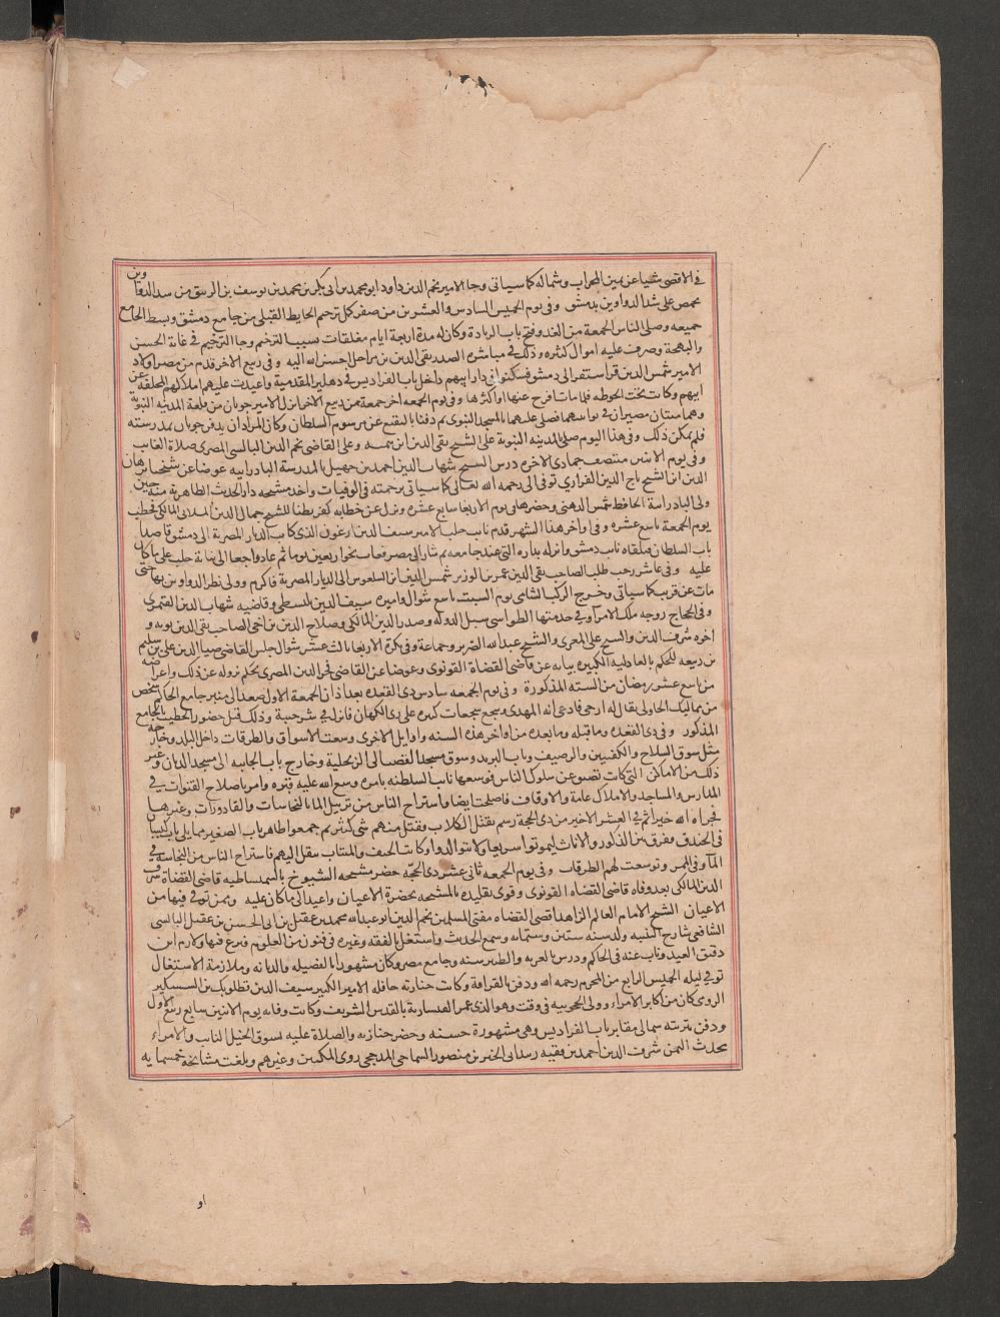 في الاقصى شيا عن يمين المحراب وشماله كما سياتي وجا الامير نجم الدين داود ابو محمد بن ابي بكر بن محمد بن يوسف بن الزيبق من شد الدواوين
بحمص على شد الدواوين بدمشق وفي يوم الخميس السادس والعشرين من صفر كمل ترخيم الحايط القبلي من جامع دمشق وبسط الجامع
جميعه وصلى الناس الجمعة من الغد وفتح باب الزيادة وكان له مدة اربعة ايام مغلقات بسبب الترخيم وجا الترخيم في غاية الحسن
والبهجة وصرف عليه اموال كثيره وذلك في مباشرة الصدر تقي الدين بن مراجل احسن الله اليه وفي ربيع الاخر قدم من مصر اولاد
الامير شمس الدين قراسنقر الى دمشق فسكنوا في دار ابيهم داخل باب الفراديس في دهليز المقدمية واعيدت عليهم املاكهم المخلفة عن
ابيهم وكانت تحت الحوطه فلما مات افرج عنها او اكثرها وفي يوم الجمعه اخر جمعة من ربيع الاخر انزل الامير جوبان من قلعة المدينه النبوية
وهما ميتان مصبران في توابيتهما فصلى عليهما بالمسجد النبوي ثم دفنا بالبقيع عن مرسوم السلطان وكان المراد ان يدفن جوبان بمدرسته
فلم يمكن ذلك وفي هذا اليوم صلي بالمدينه النبوية على الشيخ تقي الدين ابن تيميه وعلى القاضي نجم الدين البالسي المصري صلاة الغايب
وفي يوم الاثنين منتصف جمادى الاخره درس الشيخ شهاب الدين احمد بن جهبل بالمدرسة البادرايه عوضا عن شيخنا برهان
الدين ابن الشيخ تاج الدين الفزاري توفي الى رحمه الله تعالى كما سياتي ترجمته في الوفيات واخذ مشيخه دار الحديث الظاهرية منه حين
ولي البادراية الحافظ شمس الدين الذهبي وحضرها في يوم الاربعا سابع عشره ونزل عن خطابه كفربطنا للشيخ جمال الدين المسلاتي المالكي فخطب
يوم الجمعة تاسع عشره وفي اواخر هذا الشهر قدم نايب حلب الامير سيف الدين ارغون الذي كان بالديار المصرية الى دمشق قاصدا
باب السلطان فتلقاه نايب دمشق وانزله بداره التي عند جامعه ثم سار الى مصر فغاب نحوا من اربعين يوما ثم عاد راجعا الى نيابة حلب على ما كان
عليه وفي عاشر رجب طلب الصاحب تقي الدين عمر بن الوزير شمس الدين ابن السلعوس الى الديار المصرية فاكرم وولي نظر الدواوين بها حتى
مات عن قريب كما سياتي وخرج الركب الشامي يوم السبت تاسع شوال واميره سيف الدين بلسطي وقاضيه شهاب الدين القيمري
وفي الحجاج زوجه ملك الامرا وفي خدمتها الطواشي شبل الدوله وصدر الدين المالكي وصلاح الدين بن اخي الصاحب تقي الدين توبه و
اخوه شرف الدين والشيخ علي المغربي والشيخ عبد الله الضرير وجماعة وفي بكرة الاربعا ثالث عشر شوال جلس القاضي ضيا الدين علي بن سليم
بن ربيعه للحكم بالعادليه الكبيره نيابه عن قاضي القضاة القونوي وعوضا عن القاضي فخر الدين المصري بحكم نزوله عن ذلك واعراضه
من تاسع عشر رمضان من السنه المذكورة وفي يوم الجمعه سادس ذي القعده بعد اذان الجمعة الاول صعد الى منبر جامع الحاكم شخص
من مماليك الجاولي يقال له ارصي فادعى انه المهدي وسجع سجعات كثيره على راي الكهان فانزل في شر خيبة وذلك قبل حضور الخطيب بالجامع
المذكور وفي ذي القعده وما قبله وما بعده من اواخر هذه السنه واوايل الاخرى وسعت الاسواق والطرقات داخل البلد وخارجه
مثل سوق السلاح والكفيين والرصيف وباب البريد وسوق مسجد القصب الى الزنجلية وخارج باب الجابيه الى مسجد الدبان وغير
ذلك من الاماكن التي كانت تضيق عن سلوك الناس فوسعها نايب السلطنه بامره وسع الله عليه قبره وامر باصلاح القنوات في
المدارس والمساجد والاملاك عامة والاوقاف فاصلحت ايضا واستراح الناس من تربيل الما بالنجاسات والقاذورات وغيرها
فجزاه الله خيرا ثم في العشر الاخير من ذي الحجة رسم بقتل الكلاب وقتل منهم شي كثير ثم جمعوا ظاهر باب الصغير مما يلي باب كيسان
في الخندق وفرق بين الذكور والاناث ليموتوا سريعا ولا يتوالدوا وكانت الجيف والميتات تنقل اليهم فاستراح الناس من النجاسه في
المآ وفي الممر وتوسعت لهم الطرقات وفي يوم الجمعه ثاني عشر ذي الحجّه حضر مشيخه الشيوخ بالسميساطيه قاضي القضاة شرف
الدين المالكي بعد وفاه قاضي القضاه القونوي وقري تقليده بالمشيخه بحضرة الاعيان واعيد الى ما كان عليه وممن توفي فيها من
الاعيان الشيخ الامام العالم الزاهد اقضى القضاه مفتي المسلمين نجم الدين ابو عبد الله محمد بن عقيل بن ابي الحسن بن عقيل البالسي
الشافعي شارح التنبيه ولد سنه ستين وستمايه وسمع الحديث واشتغل بالفقه وغيره في فنون من العلوم فبرع فيها ولازم ابن
دقيق العيد وناب عنه في الحكم ودرس بالمعزيه والطيبرسيه وجامع مصر وكان مشهورا بالفضيله والديانه وملازمة الاشتغال
توفي ليله الخميس الرابع من المحرم رحمه الله ودفن بالقرافة وكانت جنازته حافله الامير الكبير سيف الدين قطلوبك بن الششنكير
الرومي كان من اكابر الامراء وولي الحجوبيه في وقت وهو الذي عمر القناة بالقدس الشريف وكانت وفاته يوم الاثنين سابع ربيع الاول
ودفن بتربته شمالي مقابر باب الفراديس وهي مشهورة حسنه وحضر جنازته والصلاة عليه بسوق الخيل النايب والامراء
محدث اليمن شرف الدين احمد بن فقيه زبيد ابي الخير بن منصور الشماخي المذحجي روى المكيين وغيرهم وبلغت مشايخه خمسمايه
او